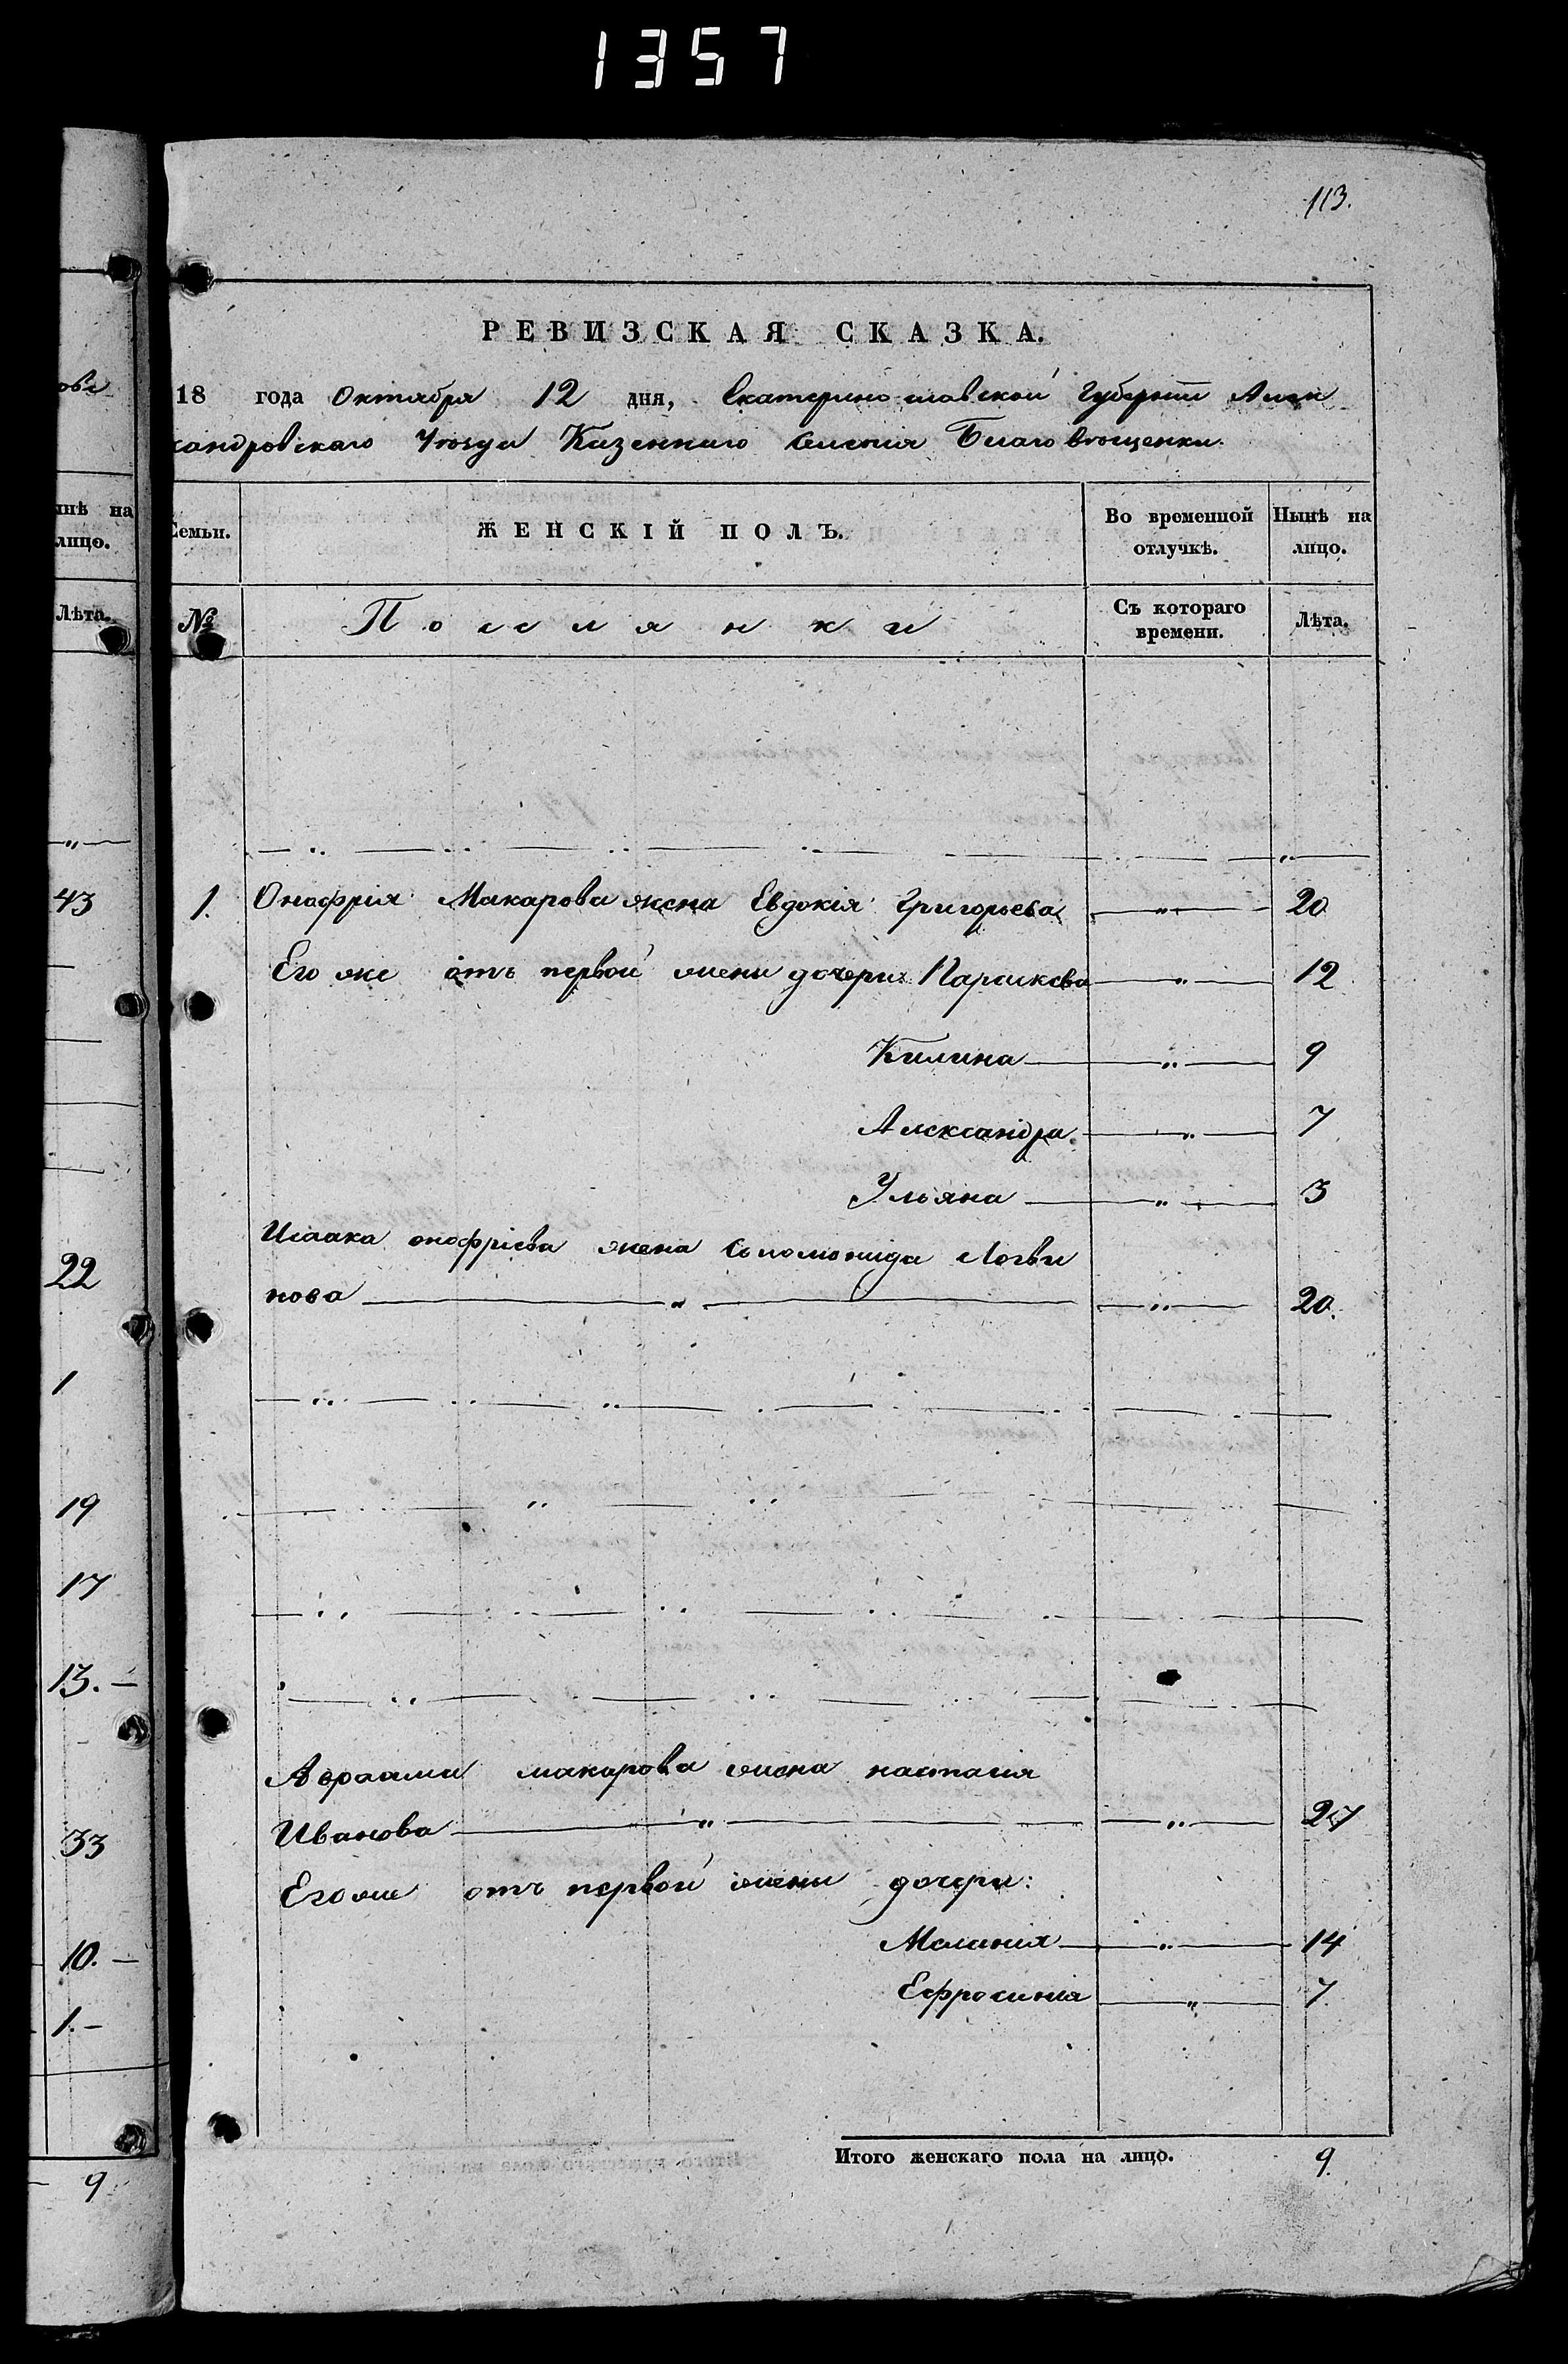 1357
113.
РЕВИЗСКАЯ СКАЗКА.
18 года Октября 12 дня, Екатеринославской Губернии Алек
сандровскаго Уѣзда Казеннаго Селенія Благовѣщенки.
Семьи. ЖЕНСКІЙ ПОЛЪ. Во временной отлучкѣ. Нынѣ на лицо.
№ Поселянки Съ котораго времени. Лѣта.
1. Онафрія Макарова жена Евдокія Григорьева — „ — 20
Его же отъ первой жены дочери: Параскева — „ — 12
Килина — „ — 9
Александра — „ — 7
Ульяна — „ — 3
Исаака онофріева жена Соломонида Логви
нова — „ — — „ — 20.
Авраама макарова жена настасия
Иванова — „ — — „ — 27
Его же отъ первой жены дочери:
Мелания — „ — 14
Ефросиния — „ — 7
Итого женскаго пола на лицо. 9.
ова
нѣ на
лицо.
Лѣта.
„
43
22
1
19
17
13. —
33
10. —
1. —
9